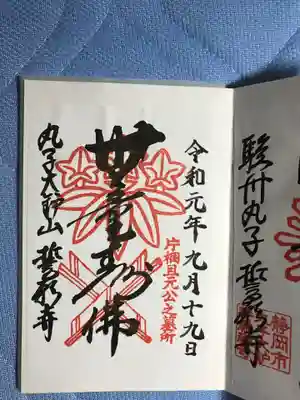 駿州丸子 誓願寺
静岡市
令和元年九月十九日
片桐且元公之墓所
無量壽佛
丸子大鈩山 誓願寺